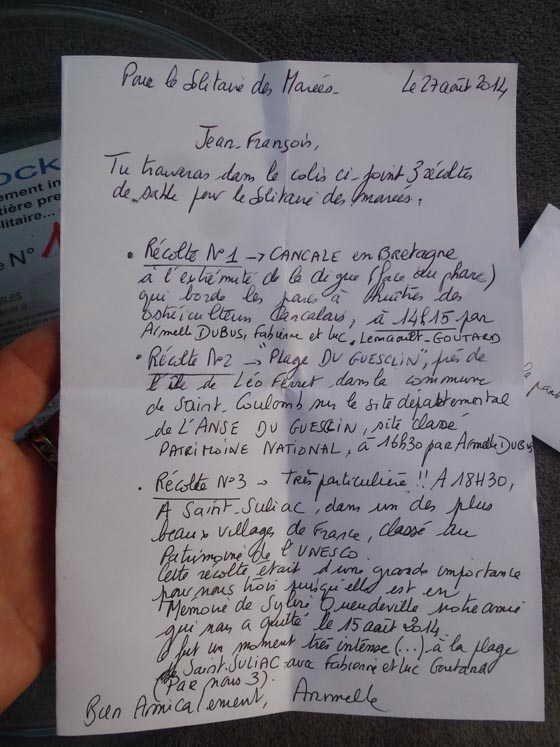 Pour le Solitaire des Marées.
Le 27 août 2014,
Jean-François,
Tu trouveras dans le colis ci-joint 3 récoltes
de sable pour le Solitaire des marées :
• Récolte N°1 → CANCALE en BRETAGNE
à l'extrémité de la digue (face au phare)
qui borde les parcs à huîtres des
ostréiculteurs Cancalais, à 14H15 par
Armelle DUBUS, Fabienne et Luc Lemoult-GOUTARD
• Récolte N°2 → "PLAGE DU GUESCLIN", près de
l'île de Léo Ferret dans la commune
de Saint-Coulomb sur le site départemental
de L'ANSE DU GUESCLIN, site classé
PATRIMOINE NATIONAL, à 16h30 par Armelle DUBUS
• Récolte N°3 → Très particulière !! A 18H30,
A SAINT-SULIAC, dans un des plus
beaux villages de France, classé au
Patrimoine de l'UNESCO.
Cette récolte était d'une grande importance
pour nous trois puisqu'elle est en
Mémoire de Sylvie Queudeville notre amie
qui nous a quitté le 15 août 2014.
Ce fut un moment très intense (...) à la plage
de SAINT-SULIAC avec Fabienne et Luc Goutard
(Par nous 3).
Bien Amicalement, Armelle
ock
ement in
tière pre
olitaire...
e N° 1
BLES
la par